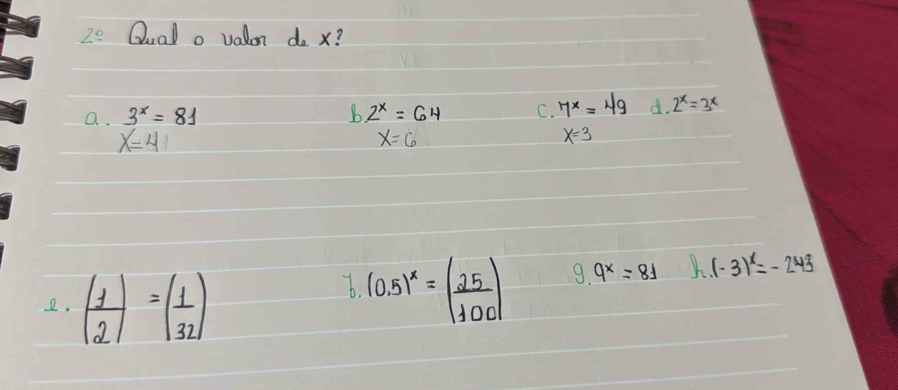 2º Qual o valor de x?
a. 3ˣ = 81 b. 2ˣ = 64 c. 7ˣ = 49 d. 2ˣ = 3ˣ
x=4 x=6 x=3
e. (1/2) = (1/32) f. (0,5)ˣ = (25/100) g. 9ˣ = 81 h. (-3)ˣ = -243